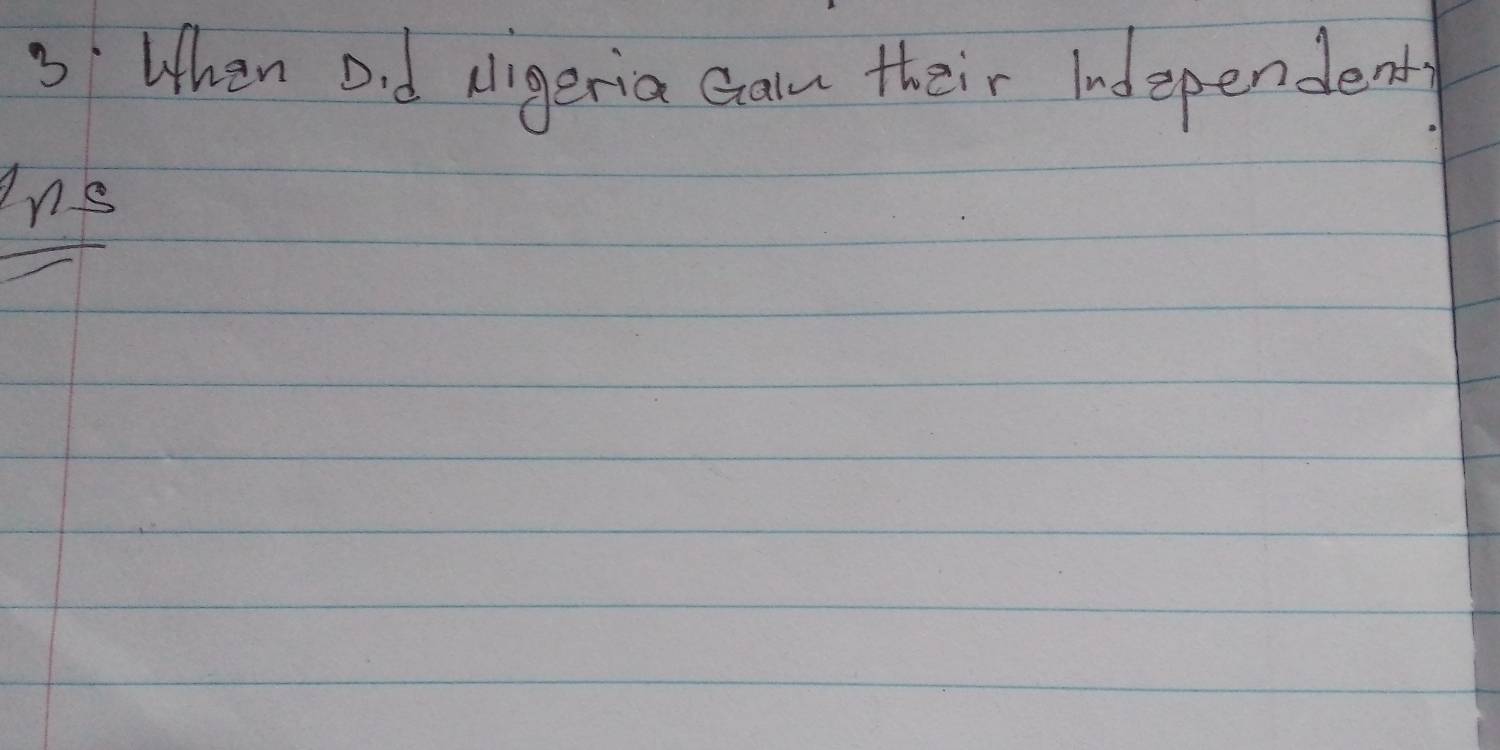 3. When Did Nigeria Gain their Independent?
Ans